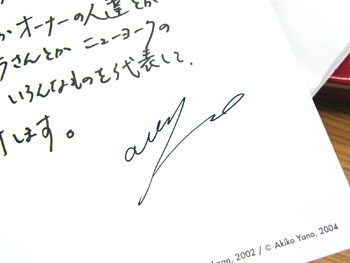 か オーナーの人達とか
さんとか ニューヨークの
いろんなものを代表して、
します。
an, 2002 / © Akiko Yano, 2004